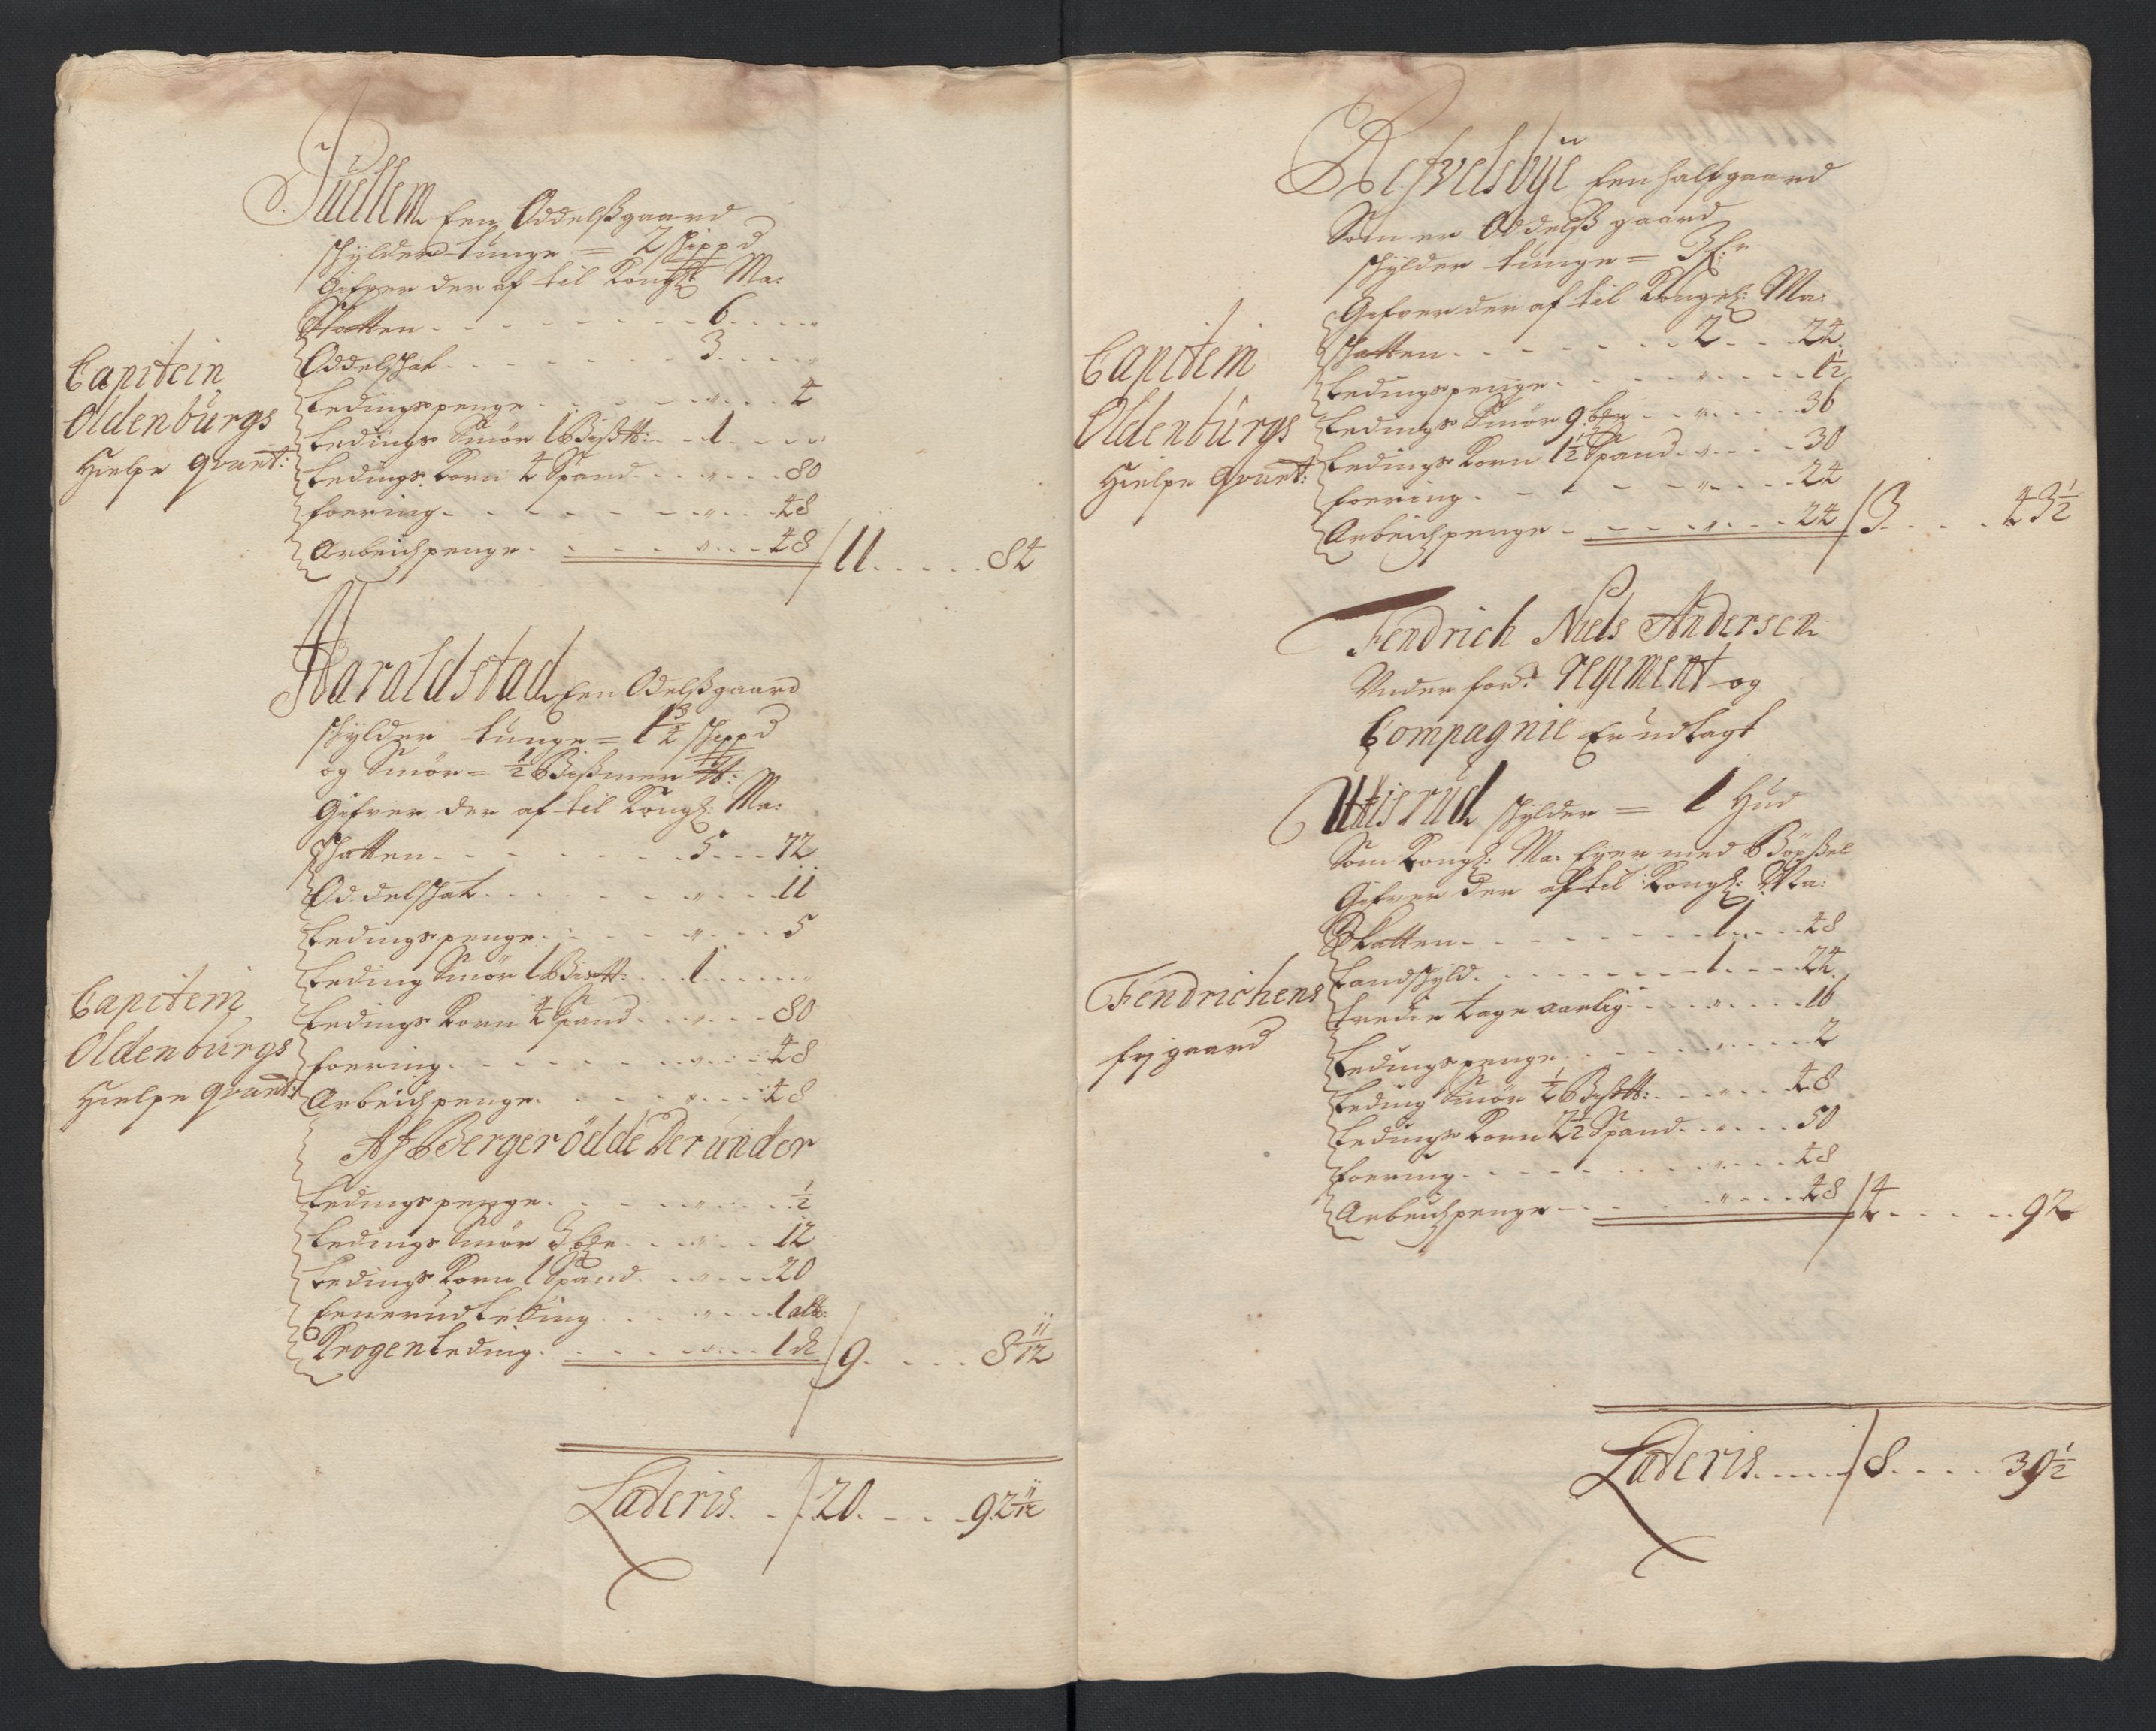 Juellem Een Oddelßgaard
skylder tunge = 2 skippd
Gifver der af til Kongl: Ma:
Skatten - - - 6 - - "
Oddelskat - - - 3 - - "
Ledingspenge - - - " - - 4
Ledings Smör 1 Bißtt: - - 1 - - "
Ledings Korn 4 Spand - - " - - 80
foering - - - " - - 48
Arbeidspenge - - - " - - 48 / 11 - - - 84
Capitein
Oldenburgs
Hielpe qvart:
Haraldstad Een Odelßgaard
skylder tunge = 1 1/2 skippd
og Smör = 1/2 Bißmer tt:
Gifver der af til Kongl: Ma:
Skatten - - - 5 - - 72
Oddelskat - - - " - - 11
Ledingspenge - - - " - - 5
Leding Smör 1 Bistt: - - 1 - - "
Ledings Korn 4 Spand - - " - - 80
foering - - - " - - 48
Arbeidspenge - - - " - - 48
Capitein
Oldenburgs
Hielpe qvart:
Af Bergerödde Der under
Ledingspenge - - - " - - 1/2
Ledings Smör 3 - - " - - 12
Ledings Korn 1 Spand - - " - - 20
Enerud Leding - - - " - - 1 alb:
Krogen Leding - - - " - - 1 / 9 - - - 8 11/12
Lateris - - / 20 - - - 92 11/12
Refvelsbye Een half gaard
Som er Oddelß gaard
skylder tunge = 3
Gifver der af til Kongel: Ma:
skatten - - - 2 - - 24
Ledingspenge - - - " - - 1 1/2
Ledings Smör 9 - - " - - 36
Ledings Korn 1 1/2 Spand - - " - - 30
foering - - - " - - 24
Arbeidspenge - - - " - - 24 / 3 - - - 43 1/2
Capitein
Oldenburgs
Hielpe qvart:
Fendrich Niels Andersen
Under ford regiment og
Compagnie Er udlagt
Uttisrud skylder = 1 Hud
Som Kongl: Ma: Eyer med Böxßel
Gifver der af til Kongl: Ma:
Skatten - - - 1 - - 48
Landskyld - - - 1 - - 24
tredie tage aarlig - - " - - 16
Ledingspenge - - - " - - 2
Leding Smör 1/2 Bißtt: - - " - - 48
Ledings Korn 2 1/2 Spand - - " - - 50
foering - - - " - - 48
Arbeidspenge - - - " - - 48 / 4 - - - 92
Fendrichens
frj gaard
Lateris - - / 8 - - - 39 1/2